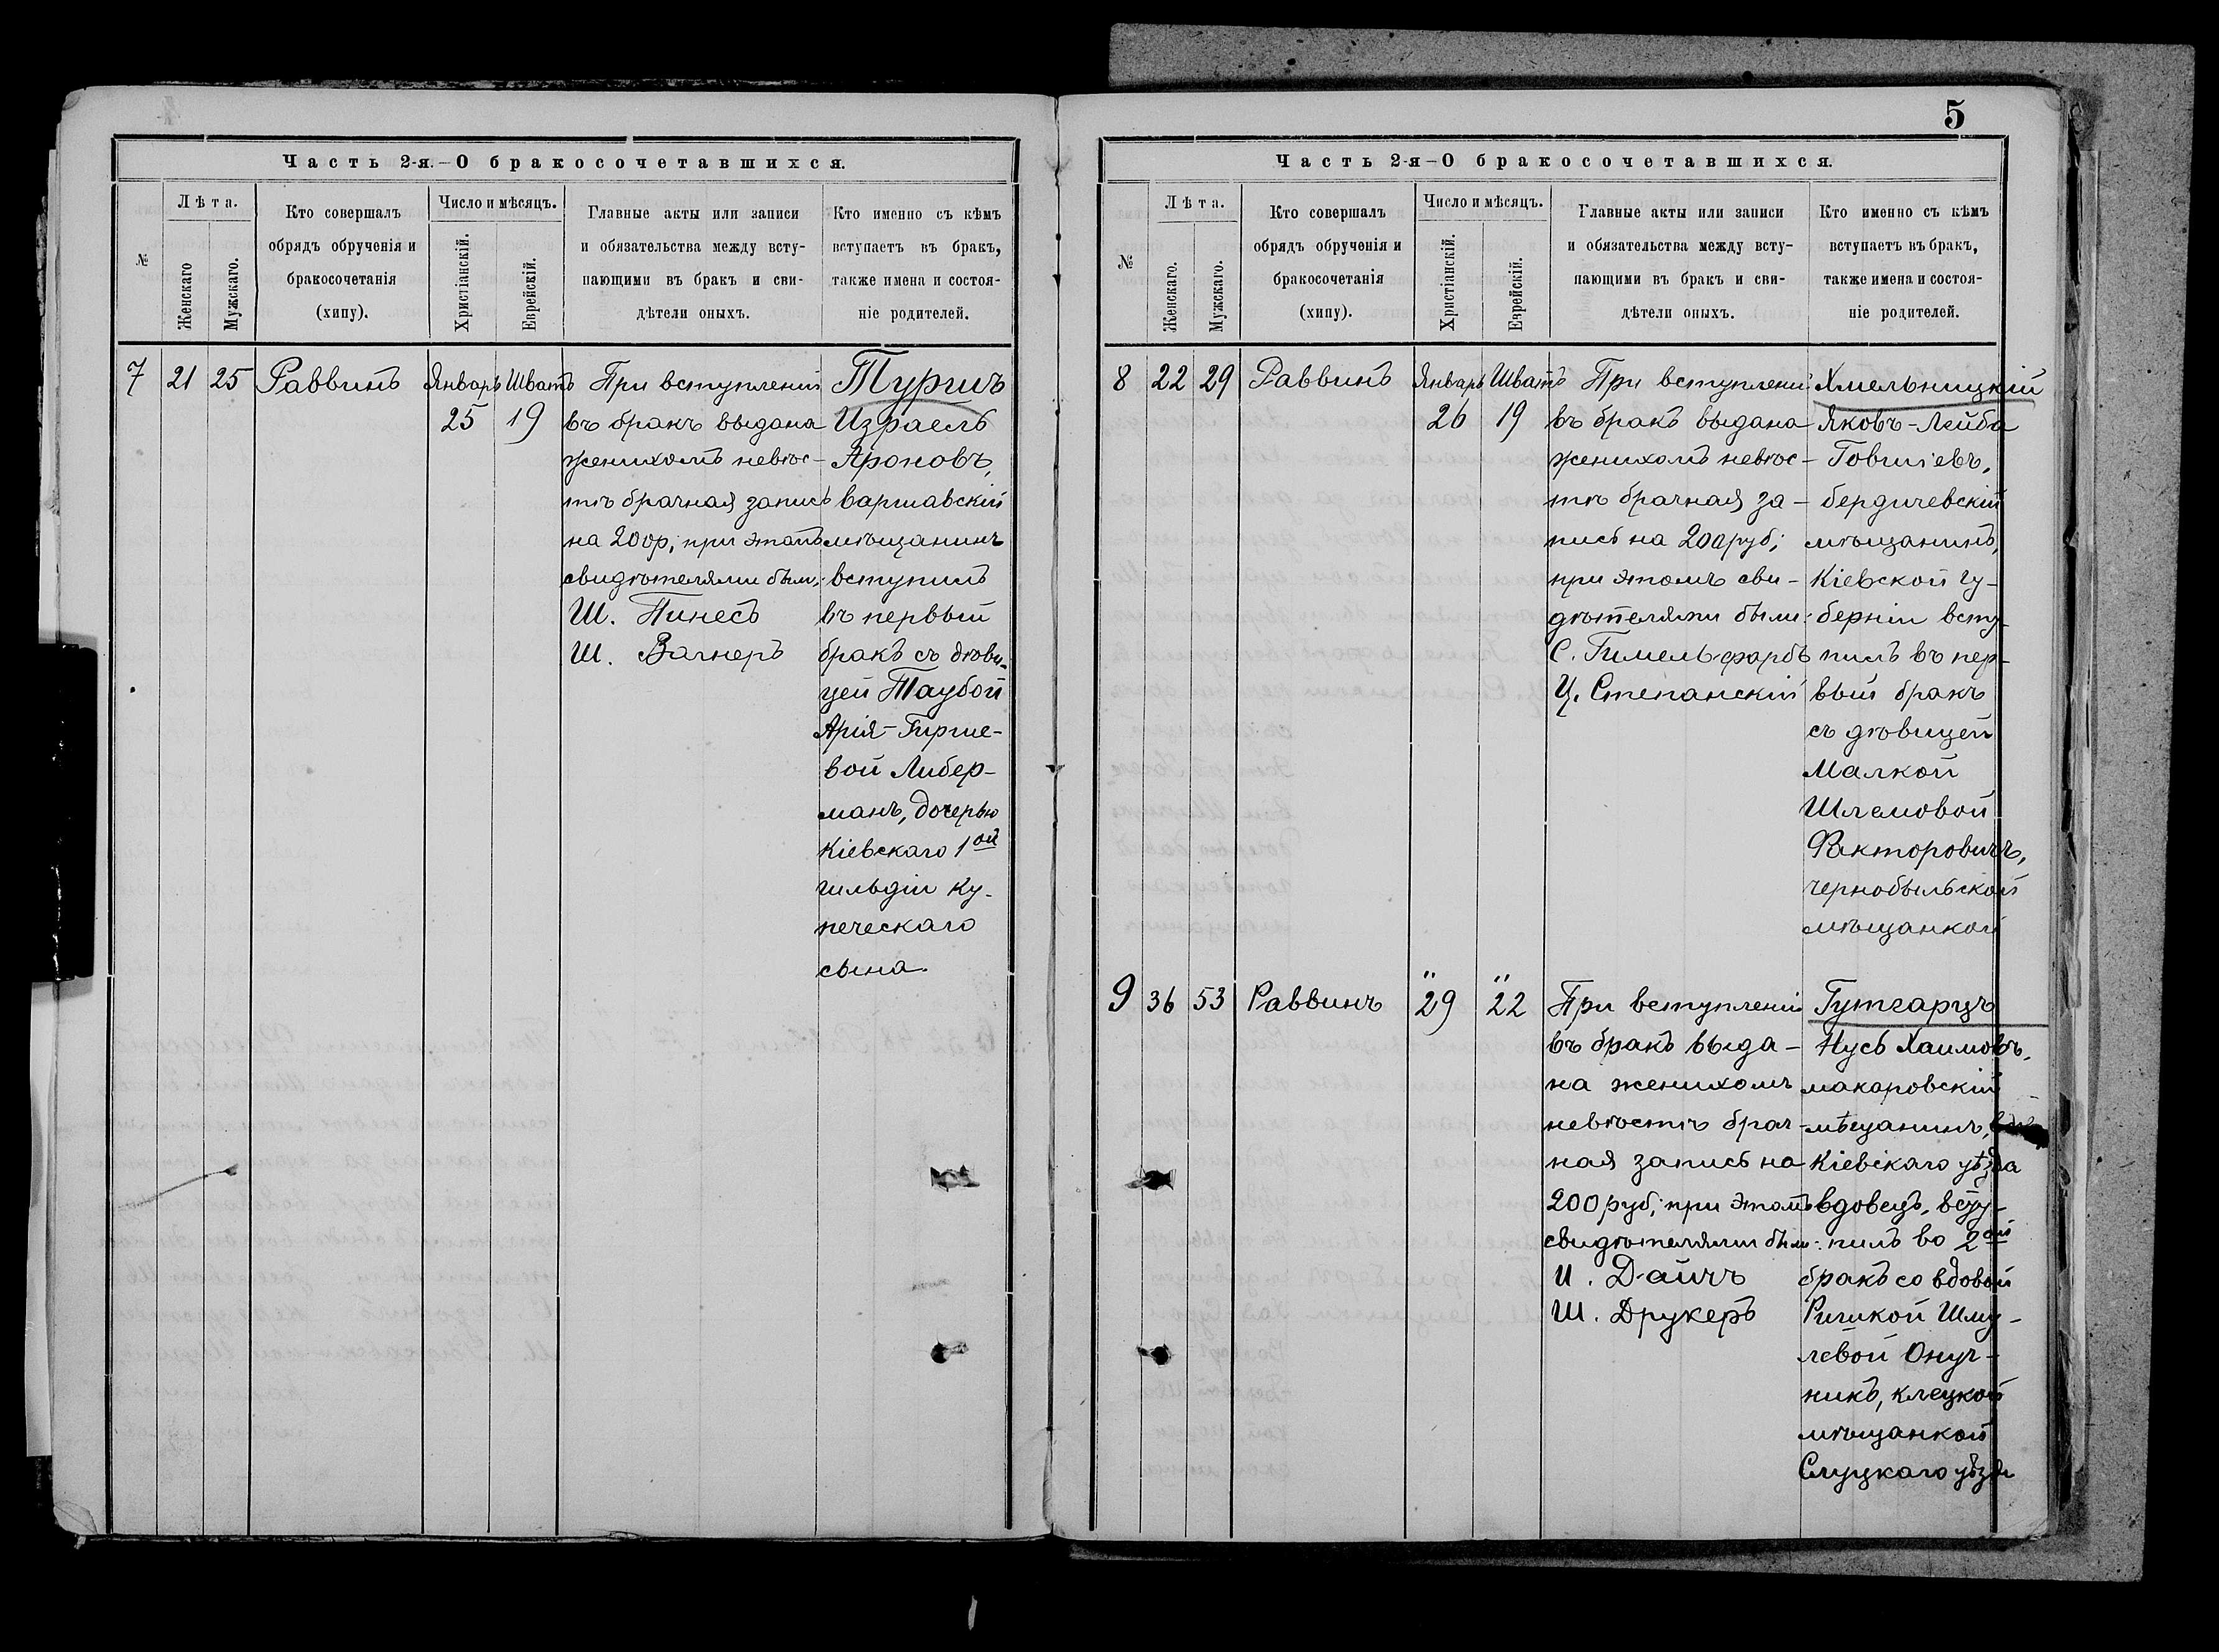 Часть 2-я.—О бракосочетавшихся.
№
Лѣта.
Женскаго
Мужскаго.
Кто совершалъ
обрядъ обрученія и
бракосочетанія
(хипу).
Число и мѣсяцъ.
Христіанскій.
Еврейскій.
Главные акты или записи
и обязательства между всту-
пающими въ бракъ и сви-
дѣтели оныхъ.
Кто именно съ кѣмъ
вступаетъ въ бракъ,
также имена и состоя-
ніе родителей.
7
21
25
Раввинъ
Январь
25
Шватъ
19
При вступленіи
въ бракъ выдана
женихомъ невѣс-
тѣ брачная запись
на 200 р; при этомъ
свидѣтелями были:
Ш. Пинесъ
Ш. Вагнеръ
Тургинъ
Израель
Ароновъ,
варшавскій
мѣщанинъ
вступилъ
въ первый
бракъ съ дѣви-
цей Таубой
Арія-Гирше-
вой Либер-
манъ, дочерью
Кіевскаго 1ой
гильдіи ку-
печескаго
сына.
5
Часть 2-я—О бракосочетавшихся.
№
Лѣта.
Женскаго.
Мужскаго.
Кто совершалъ
обрядъ обрученія и
бракосочетанія
(хипу).
Число и мѣсяцъ.
Христіанскій.
Еврейскій.
Главные акты или записи
и обязательства между всту-
пающими въ бракъ и сви-
дѣтели оныхъ.
Кто именно съ кѣмъ
вступаетъ въ бракъ,
также имена и состоя-
ніе родителей.
8
22
29
Раввинъ
Январь
26
Шватъ
19
При вступленіи
въ бракъ выдана
женихомъ невѣс-
тѣ брачная за-
пись на 200 руб;
при этомъ сви-
дѣтелями были:
С. Гимельфарбъ
Ц. Степанскій
Хмельницкій
Яковъ-Лейба
Говшіевъ,
бердичевскій
мѣщанинъ,
Кіевской гу-
берніи всту-
пилъ въ пер-
вый бракъ
съ дѣвицей
Малкой
Шлемовой
Факторовичъ,
чернобыльской
мѣщанкой
9
36
53
Раввинъ
"
29
"
22
При вступленіи
въ бракъ выда-
на женихомъ
невѣстѣ брач-
ная запись на
200 руб; при этомъ
свидѣтелями были:
И. Дайчъ
Ш. Друкеръ
Гутгарцъ
Нусь Хаимовъ,
макаровскій
мѣщанинъ,
Кіевскаго уѣзда
вдовецъ, всту-
пилъ во 2ой
бракъ со вдовой
Ривкой Шму-
левой Онуч-
никъ, клецкой
мѣщанкой
Слуцкаго уѣзда